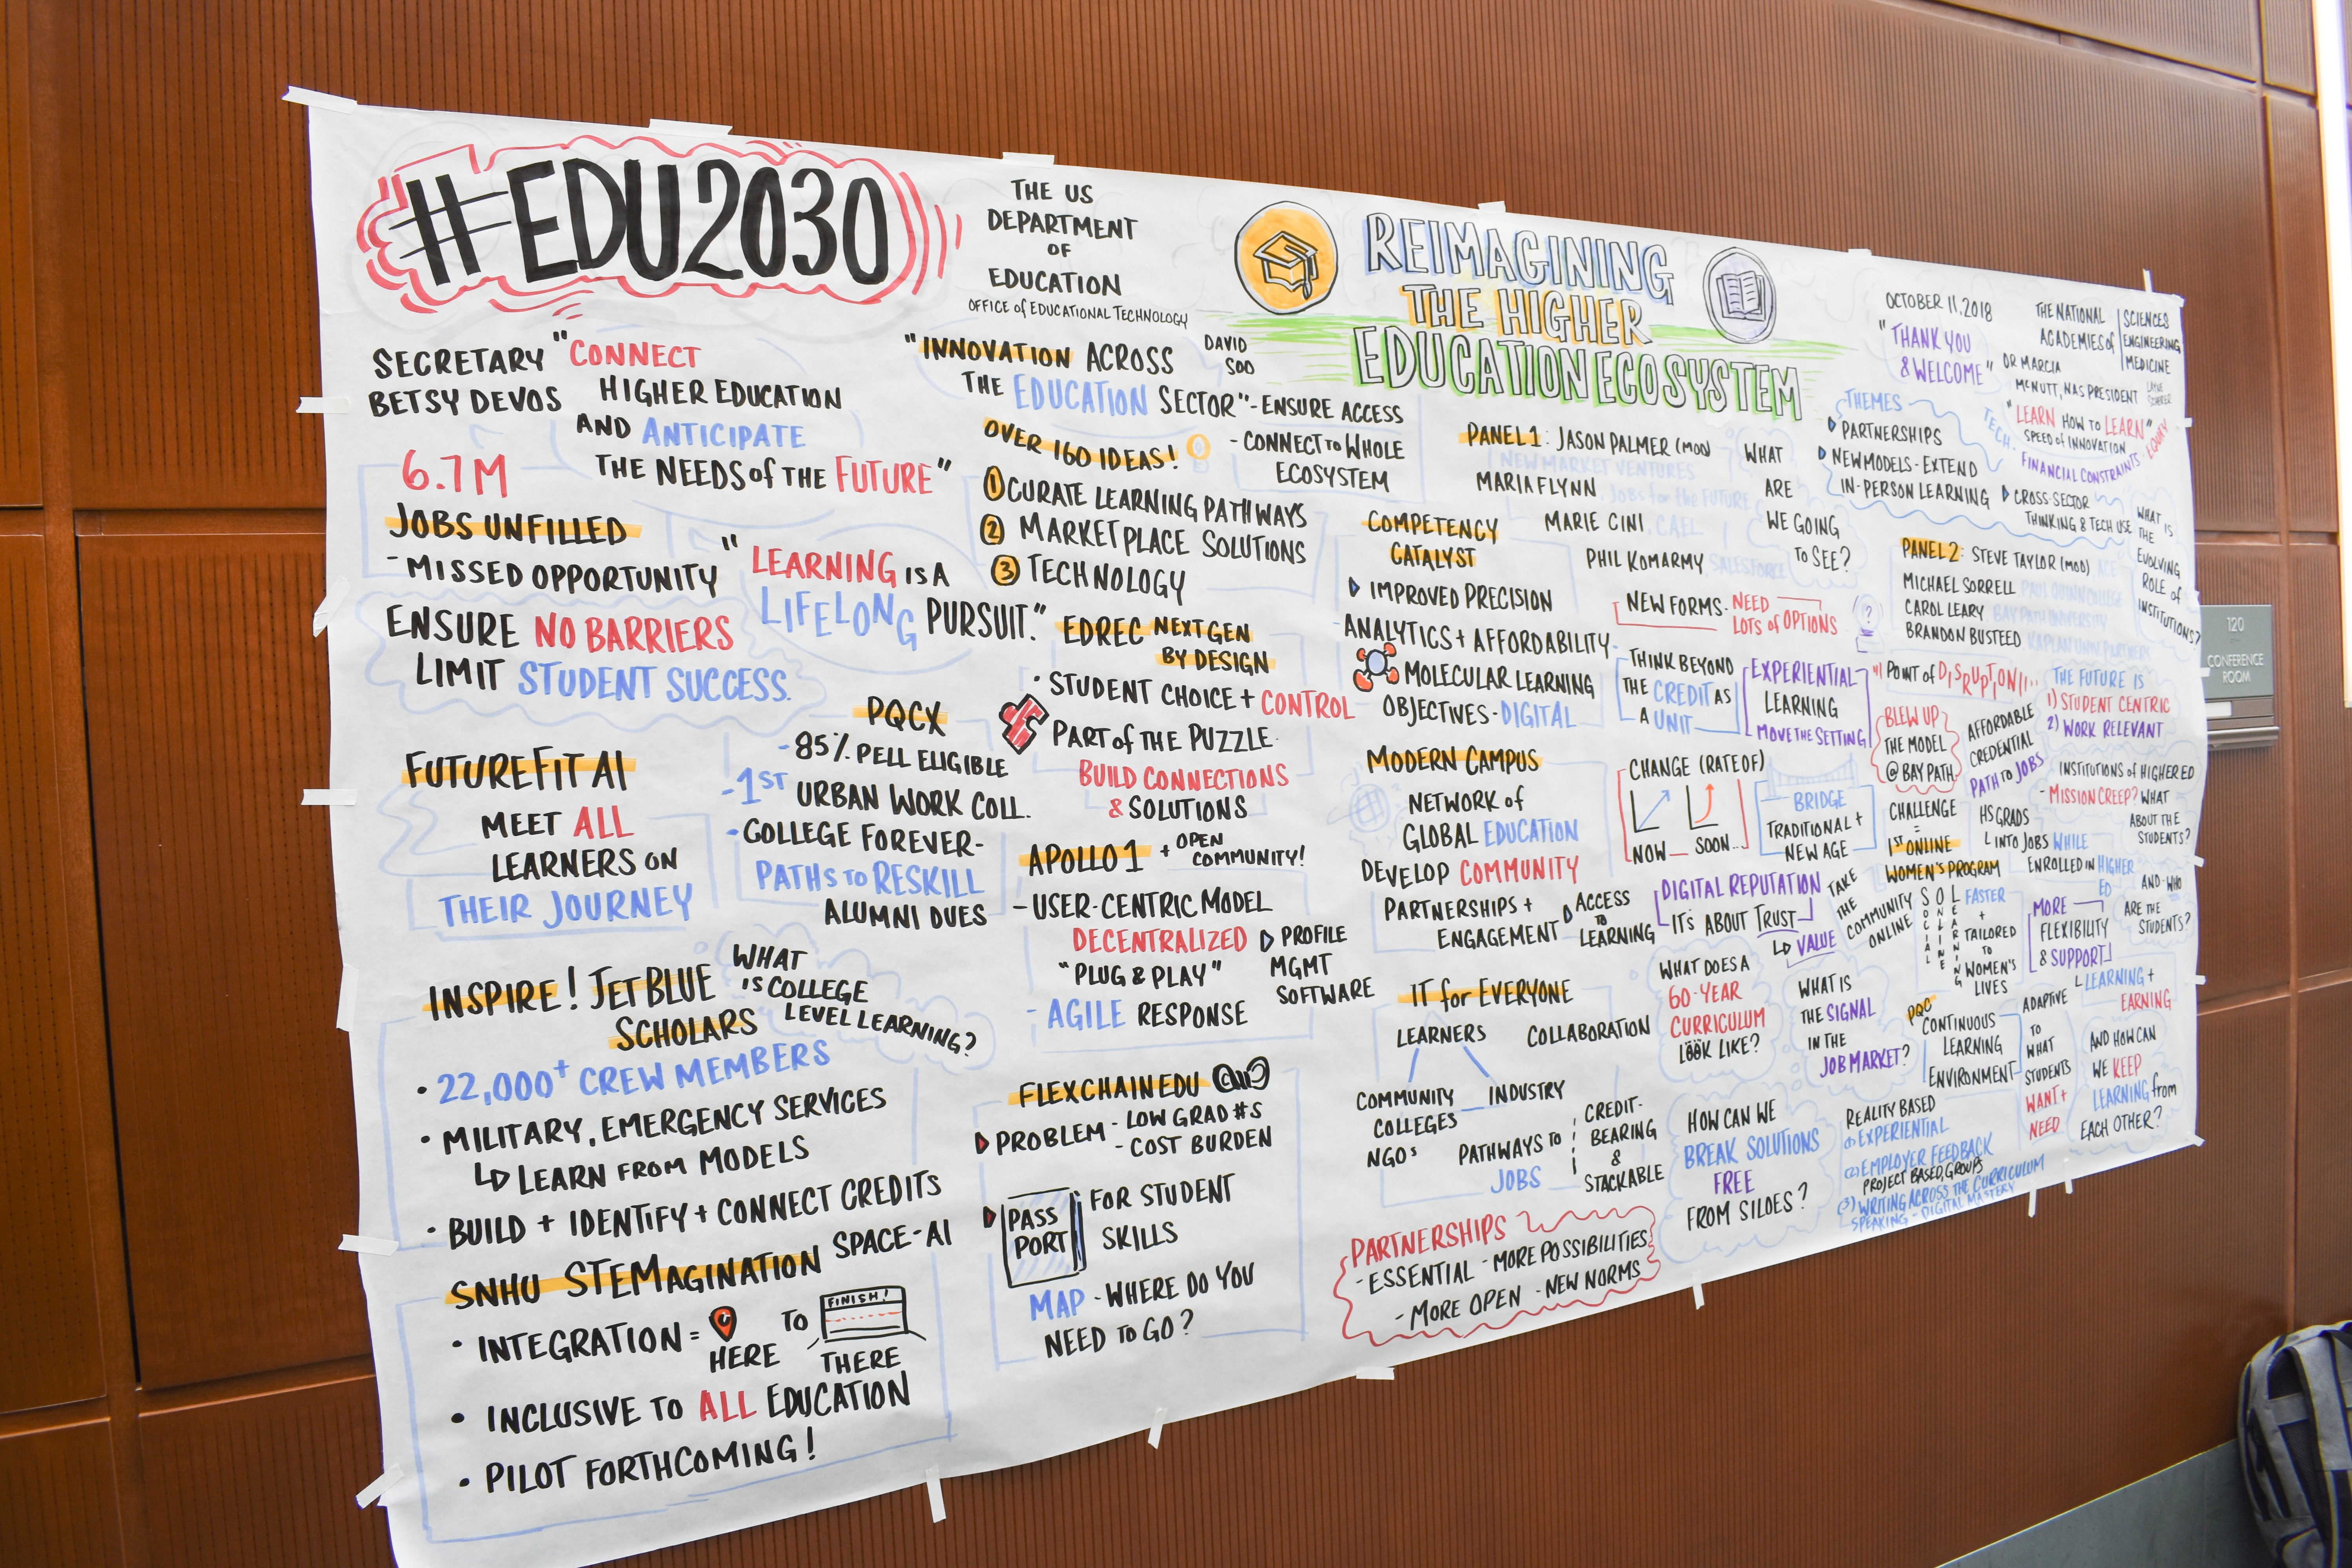 #EDU2030
THE US
DEPARTMENT
OF
EDUCATION
OFFICE of EDUCATIONAL TECHNOLOGY
SECRETARY
BETSY DEVOS
"CONNECT
HIGHER EDUCATION
AND ANTICIPATE
THE NEEDS of THE FUTURE"
6.7M
JOBS UNFILLED
- MISSED OPPORTUNITY
ENSURE NO BARRIERS
LIMIT STUDENT SUCCESS.
"LEARNING IS A
LIFELONG PURSUIT."
FUTUREFIT AI
MEET ALL
LEARNERS ON
THEIR JOURNEY
PQCX
- 85% PELL ELIGIBLE
- 1ST URBAN WORK COLL.
- COLLEGE FOREVER-
PATHS TO RESKILL
ALUMNI DUES
INSPIRE! JETBLUE
SCHOLARS
WHAT
IS COLLEGE
LEVEL LEARNING?
• 22,000+ CREW MEMBERS
• MILITARY, EMERGENCY SERVICES
LEARN FROM MODELS
• BUILD + IDENTIFY + CONNECT CREDITS
SNHU STEMAGINATION SPACE-AI
• INTEGRATION = HERE TO THERE
FINISH!
• INCLUSIVE TO ALL EDUCATION
• PILOT FORTHCOMING!
"INNOVATION ACROSS
THE EDUCATION SECTOR"
DAVID
SOO
- ENSURE ACCESS
- CONNECT TO WHOLE
ECOSYSTEM
OVER 160 IDEAS!
1 CURATE LEARNING PATHWAYS
2 MARKETPLACE SOLUTIONS
3 TECHNOLOGY
EDREC NEXT GEN
BY DESIGN
• STUDENT CHOICE + CONTROL
PART of THE PUZZLE
BUILD CONNECTIONS
& SOLUTIONS
APOLLO 1 + OPEN
COMMUNITY!
- USER-CENTRIC MODEL
DECENTRALIZED
"PLUG & PLAY"
- AGILE RESPONSE
PROFILE
MGMT
SOFTWARE
FLEXCHAINEDU
PROBLEM - LOW GRAD #S
- COST BURDEN
PASS
PORT
FOR STUDENT
SKILLS
MAP - WHERE DO YOU
NEED TO GO?
REIMAGINING
THE HIGHER
EDUCATION ECOSYSTEM
PANEL 1: JASON PALMER (MOD)
NEW MARKET VENTURES
MARIA FLYNN JOBS for the FUTURE
MARIE CINI CAEL
PHIL KOMARMY SALESFORCE
WHAT
ARE
WE GOING
TO SEE?
COMPETENCY
CATALYST
IMPROVED PRECISION
ANALYTICS + AFFORDABILITY
MOLECULAR LEARNING
OBJECTIVES - DIGITAL
NEW FORMS - NEED
LOTS of OPTIONS
?
THINK BEYOND
THE CREDIT AS
A UNIT
EXPERIENTIAL
LEARNING
MOVE THE SETTING
MODERN CAMPUS
NETWORK of
GLOBAL EDUCATION
DEVELOP COMMUNITY
PARTNERSHIPS +
ENGAGEMENT
ACCESS
TO
LEARNING
CHANGE (RATE OF)
NOW SOON...
BRIDGE
TRADITIONAL +
NEW AGE
DIGITAL REPUTATION
IT'S ABOUT TRUST
VALUE
IT for EVERYONE
LEARNERS COLLABORATION
COMMUNITY
COLLEGES
INDUSTRY
NGOs
PATHWAYS TO
JOBS
CREDIT-
BEARING
&
STACKABLE
PARTNERSHIPS
- ESSENTIAL - MORE POSSIBILITIES
- MORE OPEN - NEW NORMS
WHAT DOES A
60-YEAR
CURRICULUM
LOOK LIKE?
WHAT IS
THE SIGNAL
IN THE
JOB MARKET?
HOW CAN WE
BREAK SOLUTIONS
FREE
FROM SILOES?
OCTOBER 11, 2018
"THANK YOU
& WELCOME"
THE NATIONAL
ACADEMIES of
SCIENCES
ENGINEERING
MEDICINE
DR MARCIA
MCNUTT, NAS PRESIDENT
"LEARN HOW TO LEARN"
SPEED of INNOVATION
TECH.
FINANCIAL CONSTRAINTS -
EQUITY
THEMES
PARTNERSHIPS
NEW MODELS - EXTEND
IN-PERSON LEARNING
CROSS-SECTOR
THINKING & TECH USE
WHAT IS
THE
EVOLVING
ROLE of
INSTITUTIONS?
PANEL 2: STEVE TAYLOR (MOD) ACE
MICHAEL SORRELL PAUL QUINN COLLEGE
CAROL LEARY BAY PATH UNIVERSITY
BRANDON BUSTEED KAPLAN UNIV. PARTNERS
POINT of DISRUPTION!
THE FUTURE IS
1) STUDENT CENTRIC
2) WORK RELEVANT
BLEW UP
THE MODEL
@ BAY PATH
AFFORDABLE
CREDENTIAL
PATH TO JOBS
INSTITUTIONS of HIGHER ED
- MISSION CREEP? WHAT
ABOUT THE
STUDENTS?
CHALLENGE
=
1ST ONLINE
WOMEN'S PROGRAM
HS GRADS
INTO JOBS WHILE
ENROLLED IN HIGHER
ED
AND - WHO
ARE THE
STUDENTS?
TAKE
THE
COMMUNITY
ONLINE
SOCIAL
ONLINE
LEARNING
FASTER
+
TAILORED
TO
WOMEN'S
LIVES
MORE
FLEXIBILITY
& SUPPORT
LEARNING +
EARNING
PQC
CONTINUOUS
LEARNING
ENVIRONMENT
ADAPTIVE
TO
WHAT
STUDENTS
WANT +
NEED
AND HOW CAN
WE KEEP
LEARNING from
EACH OTHER?
REALITY BASED
(1) EXPERIENTIAL
(2) EMPLOYER FEEDBACK
PROJECT BASED, GROUPS
(3) WRITING ACROSS THE CURRICULUM
SPEAKING - DIGITAL MASTERY
120
CONFERENCE
ROOM